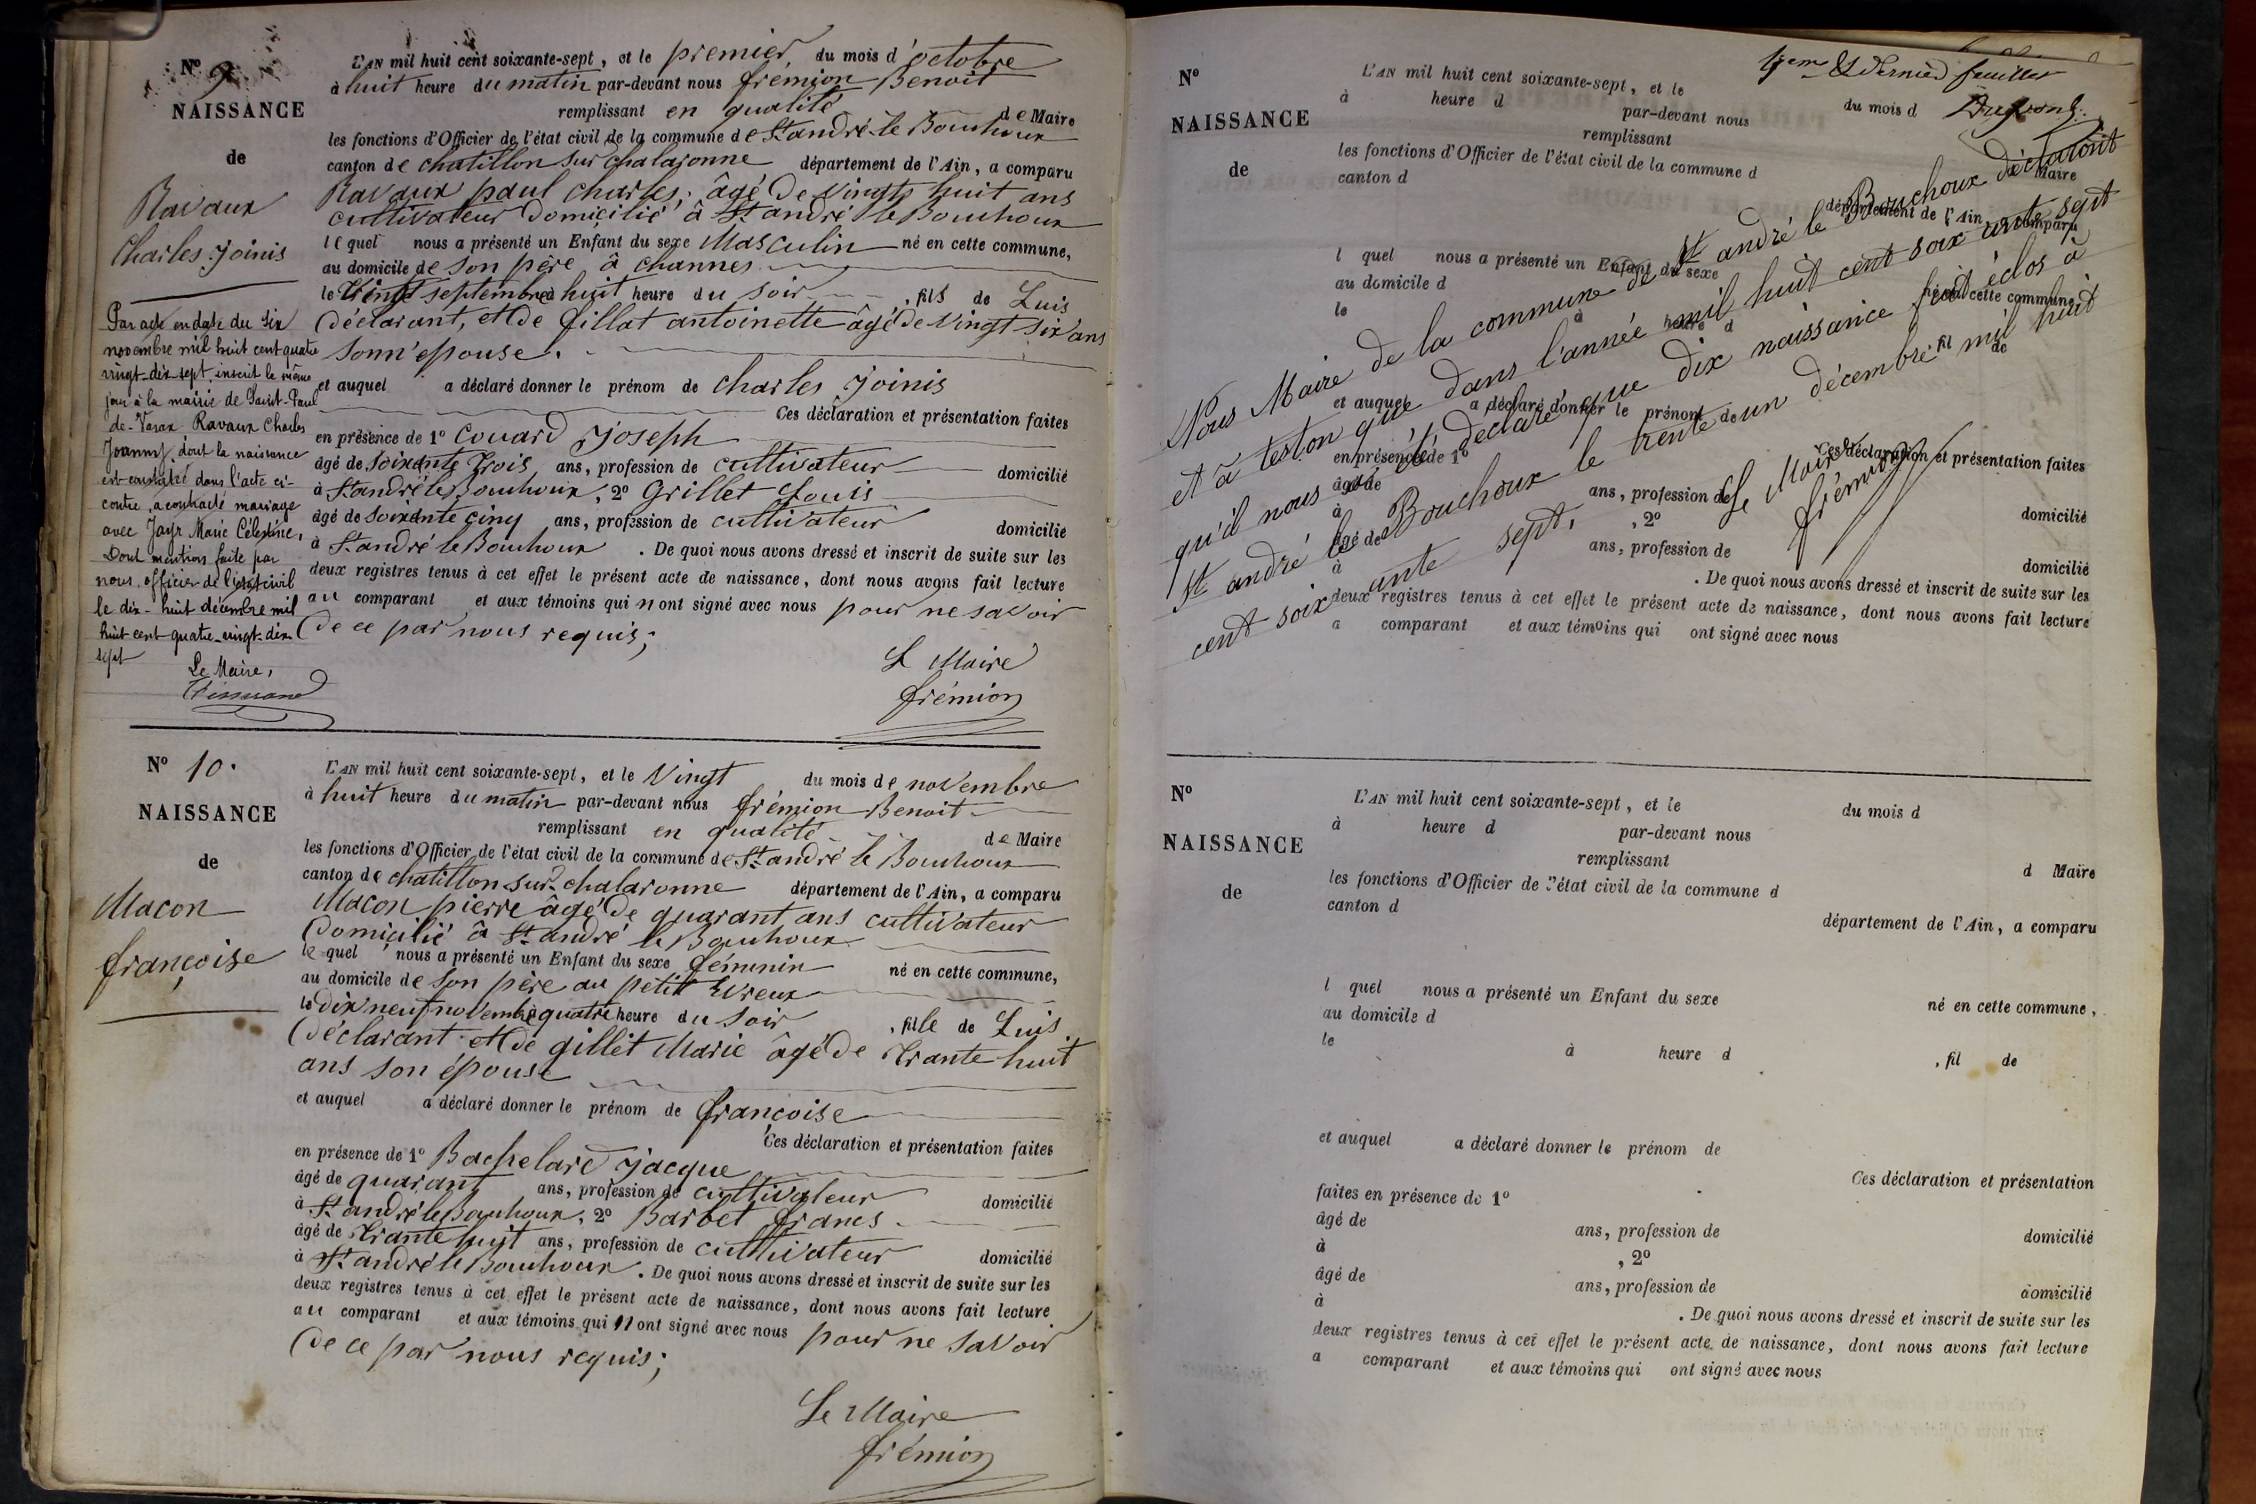 N° 9
NAISSANCE
de
Ravaux
Charles Joinis
Par acte en date du six
novembre mil huit cent quatre
vingt-dix sept, inscrit le même
jour à la mairie de Saint-Paul
de-Varax Ravaux Charles
Joanny, dont la naissance
est constatée dans l'acte ci-
contre, a contracté mariage
avec Jayr Marie Célestine,
Dont mention faite par
nous, officier de l'état civil
le dix-huit décembre mil
huit cent quatre-vingt-dix
sept
Le Maire,
L'AN mil huit cent soixante-sept, et le premier, du mois d'octobre
à huit heure du matin par-devant nous frémion Benoit
remplissant en qualité de Maire
les fonctions d'Officier de l'état civil de la commune de St andré le Bouchoux
canton de chatillon sur chalaronne département de l'Ain, a comparu
Ravaux paul charles, âgé de vingt huit ans
cultivateur domicilié à St andré le Bouchoux
lequel nous a présenté un Enfant du sexe Masculin né en cette commune,
au domicile de son père à channes
le trente septembre à huit heure du soir, fils de Luis
déclarant, et de fillat antoinette âgé de vingt six ans
sonn'epouse.
et auquel a déclaré donner le prénom de charles joinis
Ces déclaration et présentation faites
en présence de 1° Couard joseph
âgé de soixante trois ans, profession de cultivateur domicilié
à St andré le Bouchoux, 2° Grillet Louis
âgé de soixante cinq ans, profession de cultivateur domicilié
à St andré le Bouchoux. De quoi nous avons dressé et inscrit de suite sur les
deux registres tenus à cet effet le présent acte de naissance, dont nous avons fait lecture
au comparant et aux témoins qui n ont signé avec nous pour ne savoir
de ce par nous requis;
L Maire
frémion
N° 10.
NAISSANCE
de
Macon
françoise
L'AN mil huit cent soixante-sept, et le vingt du mois de novembre
à huit heure du matin par-devant nous frémion Benoit
remplissant en qualité de Maire
les fonctions d'Officier de l'état civil de la commune de St andré le Bouchoux
canton de chatillon sur chalaronne département de l'Ain, a comparu
Macon pierre âgé de quarant ans cultivateur
domicilié à St andré le Bouchoux
lequel nous a présenté un Enfant du sexe féminin né en cette commune,
au domicile de son père au petit Evreux
le dix neuf novembre à quatre heure du soir, fille de Luis
déclarant et de gillet Marie âgé de trante huit
ans son épouse
et auquel a déclaré donner le prénom de françoise
Ces déclaration et présentation faites
en présence de 1° Bachelard jacque
âgé de quarant ans, profession de cultivateur domicilié
à St andré le Bouchoux, 2° Barbet francs
âgé de trante huit ans, profession de cultivateur domicilié
à St andré le Bouchoux. De quoi nous avons dressé et inscrit de suite sur les
deux registres tenus à cet effet le présent acte de naissance, dont nous avons fait lecture
au comparant et aux témoins qui n ont signé avec nous pour ne savoir
de ce par nous requis;
Le Maire
frémion
& dernier feuillet
N°
NAISSANCE
de
L'AN mil huit cent soixante-sept, et le du mois d
à heure d par-devant nous
remplissant Maire
les fonctions d'Officier de l'état civil de la commune d
canton d département de l'Ain, a comparu
l quel nous a présenté un Enfant du sexe né en cette commune,
au domicile d
le à heure d fil de
et auquel a déclaré donner le prénom de
Ces déclaration et présentation faites
en présence de 1°
âgé de ans, profession de domicilié
à , 2°
âgé de ans, profession de domicilié
à . De quoi nous avons dressé et inscrit de suite sur les
deux registres tenus à cet effet le présent acte de naissance, dont nous avons fait lecture
a comparant et aux témoins qui ont signé avec nous
Nous Maire de la commune de St andré le Bouchoux déclaront
et à teston que dans l'année mil huit cent soixante sept
qu'il nous a été déclaré que dix naissance sont éclos à
St andré le Bouchoux le trente un décembre mil huit
cent soixante sept.
Le Maire
frémion
N°
NAISSANCE
de
L'AN mil huit cent soixante-sept, et le du mois d
à heure d par-devant nous
remplissant d Maire
les fonctions d'Officier de l'état civil de la commune d
canton d département de l'Ain, a comparu
l quel nous a présenté un Enfant du sexe né en cette commune,
au domicile d
le à heure d , fil de
et auquel a déclaré donner le prénom de
Ces déclaration et présentation
faites en présence de 1°
âgé de ans, profession de domicilié
à , 2°
âgé de ans, profession de domicilié
à . De quoi nous avons dressé et inscrit de suite sur les
deux registres tenus à cet effet le présent acte de naissance, dont nous avons fait lecture
a comparant et aux témoins qui ont signé avec nous